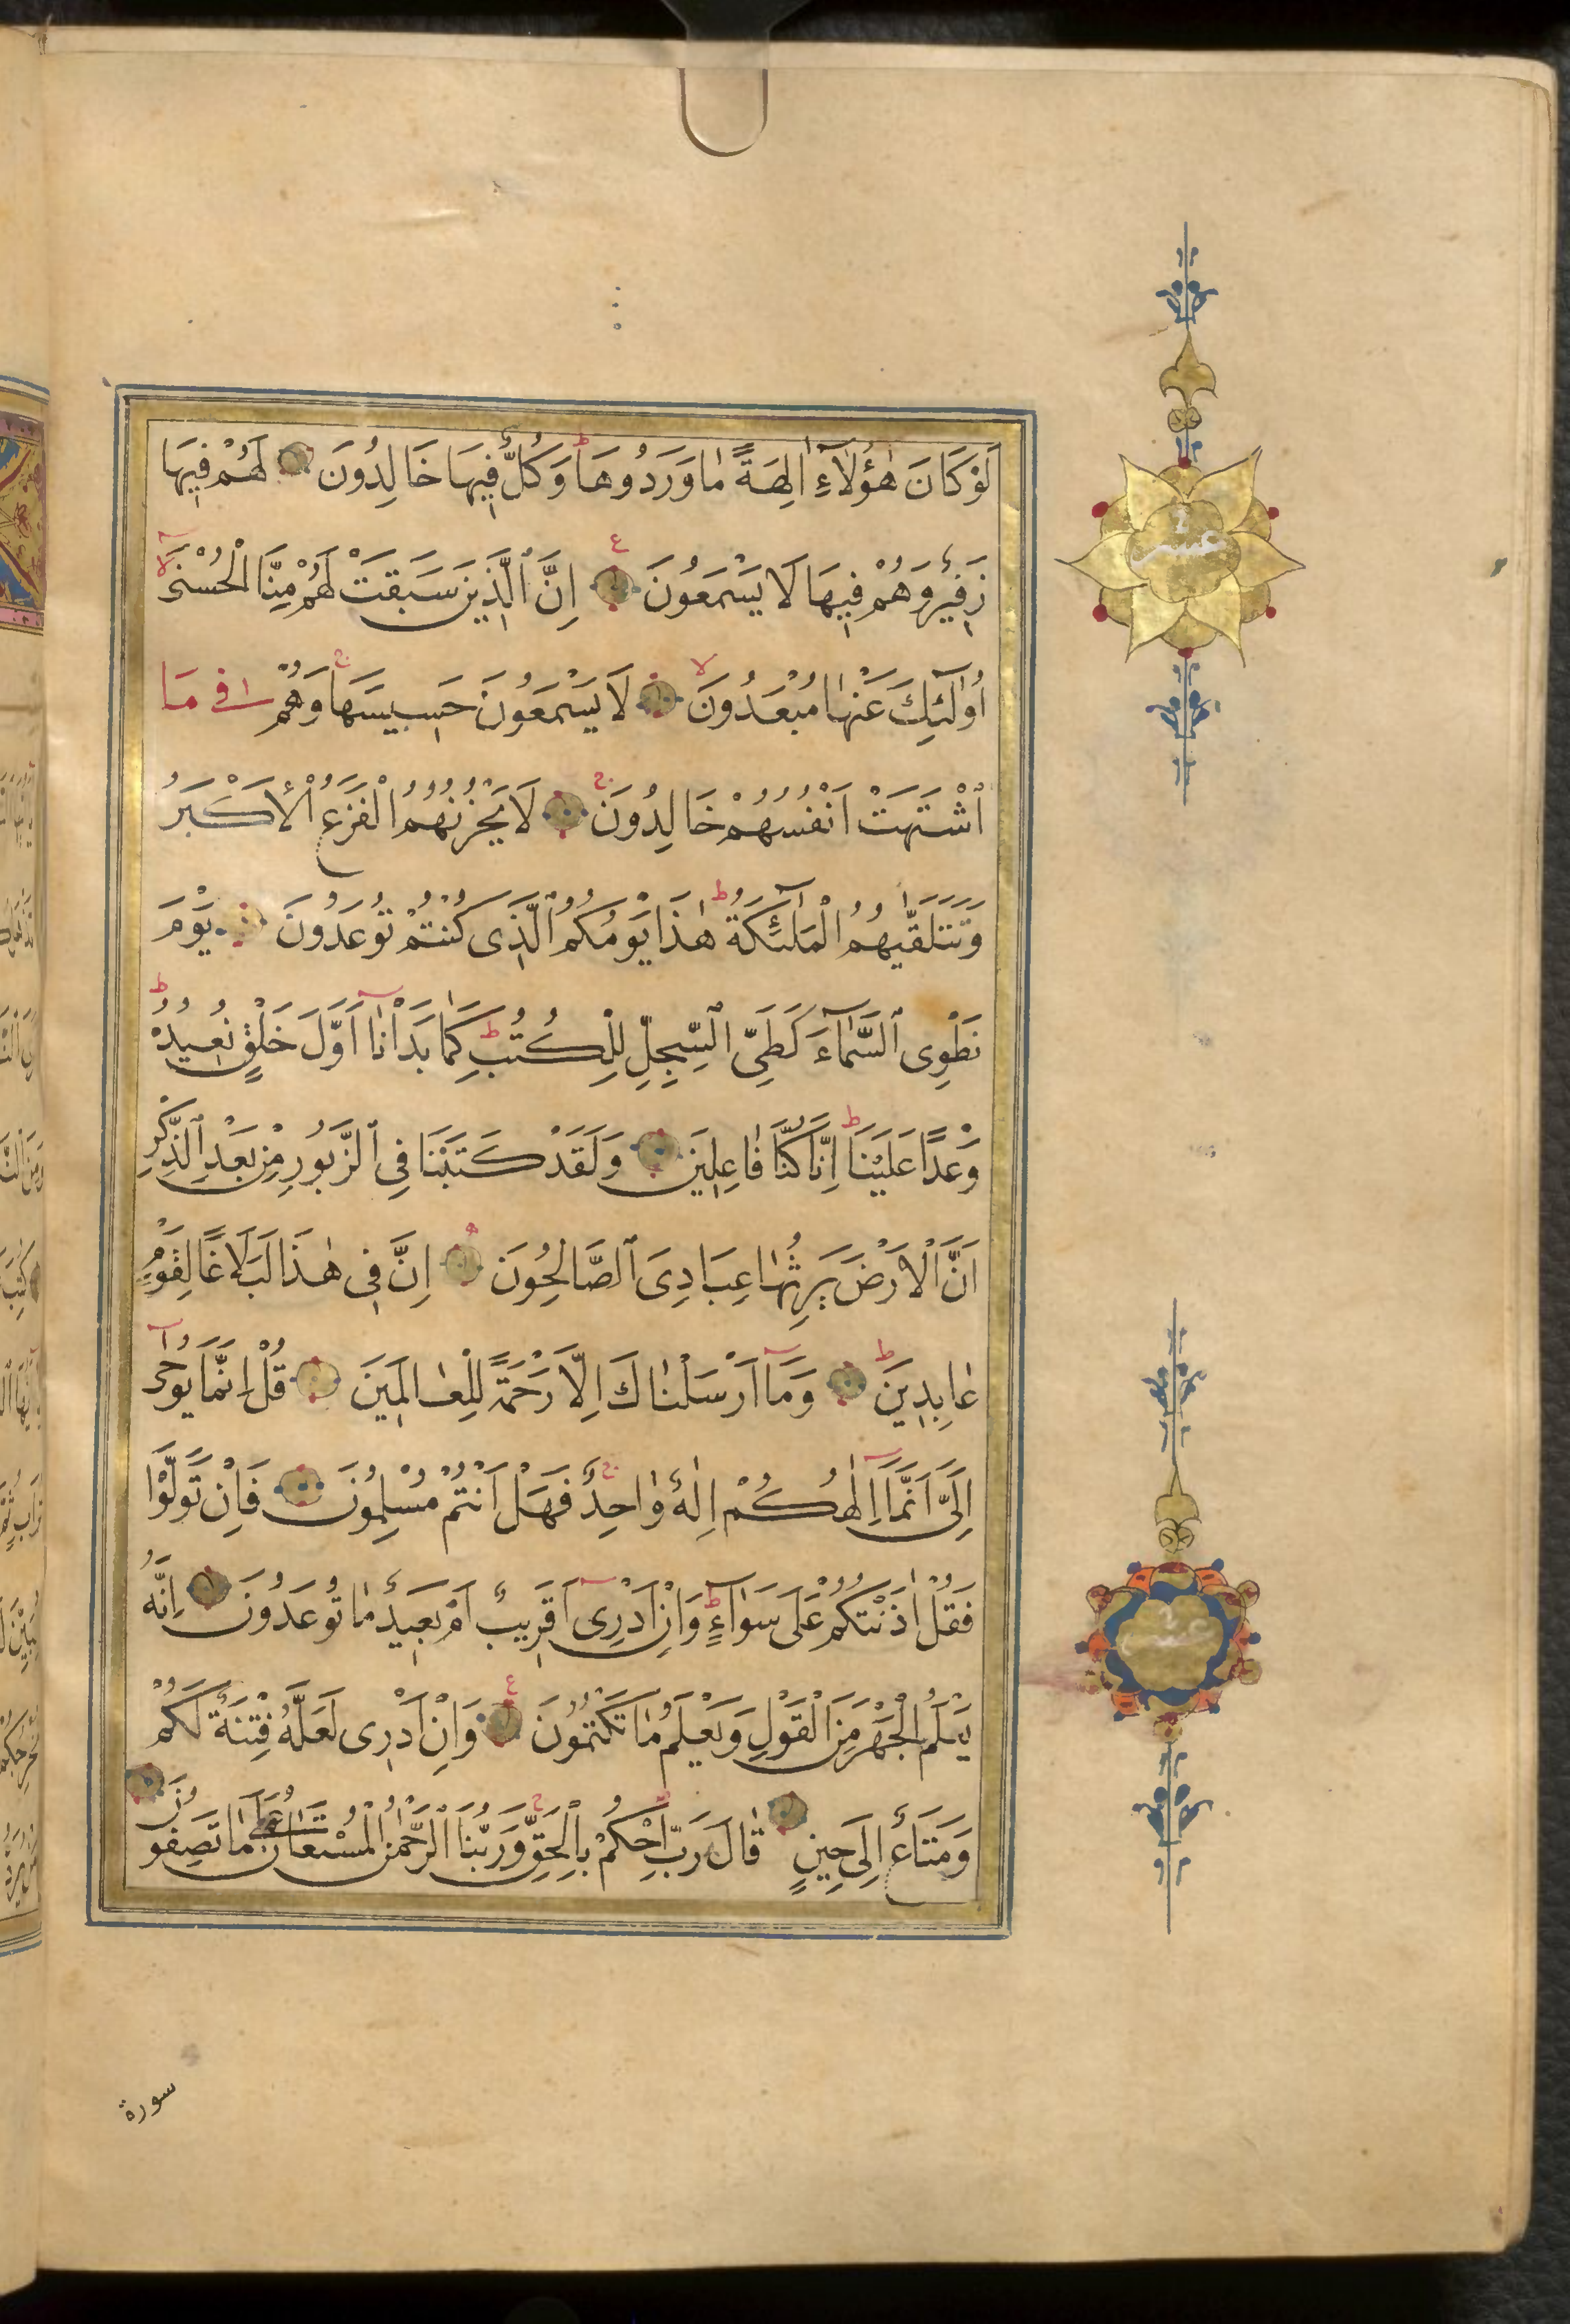 لَوْ كَانَ هٰؤُلَآءِ اٰلِهَةً مٰا وَرَدُوهَا ط وَكُلٌّ فِيهَا خَالِدُونَ لَهُمْ فِيهَا
زَفِيرٌ وَهُمْ فِيهَا لَا يَسْمَعُونَ ع اِنَّ الَّذِينَ سَبَقَتْ لَهُمْ مِنَّا الْحُسْنٰى لا
اُولٰٓئِكَ عَنْهٰا مُبْعَدُونَ لا لَا يَسْمَعُونَ حَسِيسَهَا ج وَهُمْ فِى مَا
اشْتَهَتْ اَنْفُسُهُمْ خَالِدُونَ ج لَا يَحْزُنُهُمُ الْفَزَعُ الْاَكْبَرُ
وَتَتَلَقّٰيهُمُ الْمَلٰٓئِكَةُ ط هٰذَا يَوْمُكُمُ الَّذِى كُنْتُمْ تُوعَدُونَ يَوْمَ
نَطْوِى السَّمَآءَ كَطَىِّ السِّجِلِّ لِلْكُتُبِ ط كَمٰا بَدَاْنٰا اَوَّلَ خَلْقٍ نُعِيدُهُ ط
وَعْدًا عَلَيْنَا ط اِنَّا كُنَّا فٰاعِلِينَ وَلَقَدْ كَتَبْنَا فِى الزَّبُورِ مِنْ بَعْدِ الذِّكْرِ
اَنَّ الْاَرْضَ يَرِثُهٰا عِبَادِىَ الصَّالِحُونَ اِنَّ فِى هٰذَا لَبَلَاغًا لِقَوْمٍ
عٰابِدِينَ ط وَمَآ اَرْسَلْنٰاكَ اِلَّا رَحْمَةً لِلْعٰالَمِينَ قُلْ اِنَّمَا يُوحٰى
اِلَىَّ اَنَّمَا اِلٰهُكُمْ اِلٰهٌ وٰاحِدٌ ج فَهَلْ اَنْتُمْ مُسْلِمُونَ فَاِنْ تَوَلَّوْا
فَقُلْ اٰذَنْتُكُمْ عَلٰى سَوَآءٍ ط وَاِنْ اَدْرِى اَقَرِيبٌ اَمْ بَعِيدٌ مٰا تُوعَدُونَ اِنَّهُ
يَعْلَمُ الْجَهْرَ مِنَ الْقَوْلِ وَيَعْلَمُ مٰا تَكْتُمُونَ ع وَاِنْ اَدْرِى لَعَلَّهُ فِتْنَةٌ لَكُمْ
وَمَتَاعٌ اِلٰى حِينٍ قٰالَ رَبِّ احْكُمْ بِالْحَقِّ وَرَبُّنَا الرَّحْمٰنُ الْمُسْتَعَانُ عَلٰى مٰا تَصِفُونَ
عشر
عشر
سورة